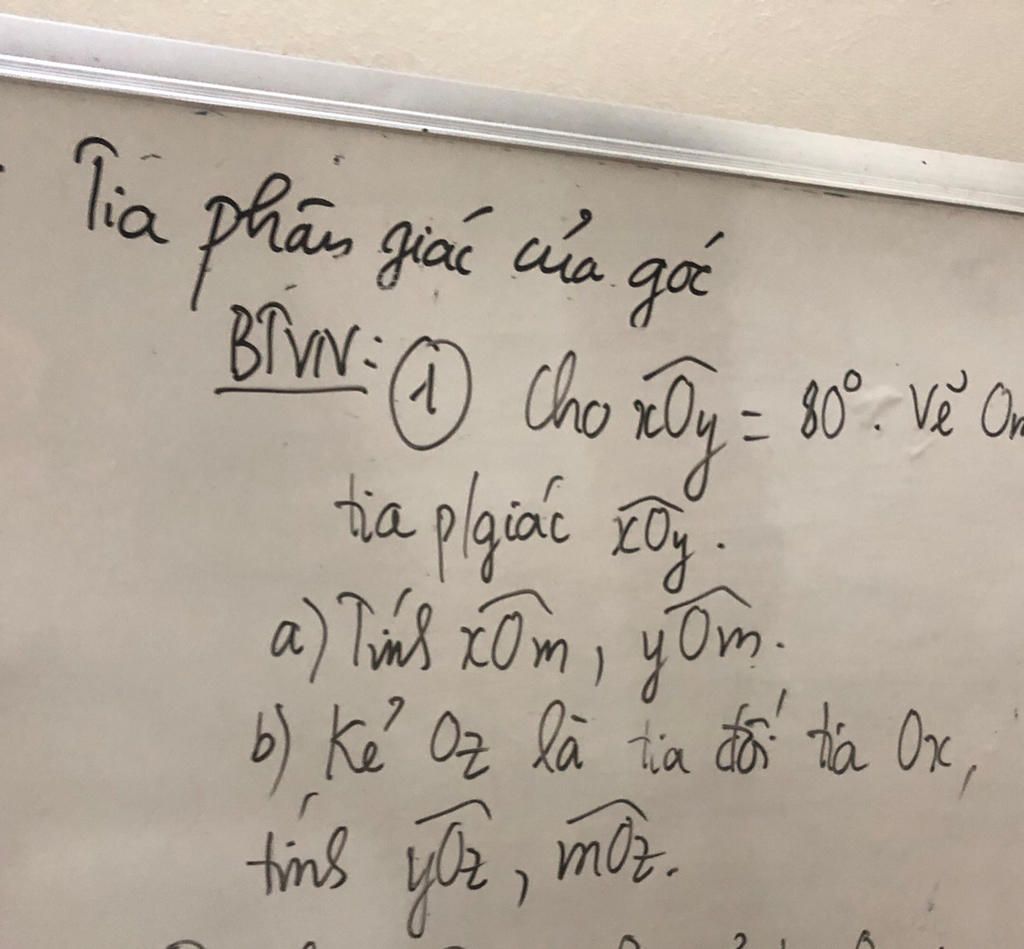 Tia phân giác của góc
BTVN: ① Cho x̂Oy = 80°. Vẽ Om
tia p/giác x̂Oy.
a) Tính x̂Om, ŷOm.
b) Kẻ Oz là tia đối tia Ox,
tính ŷOz, m̂Oz.